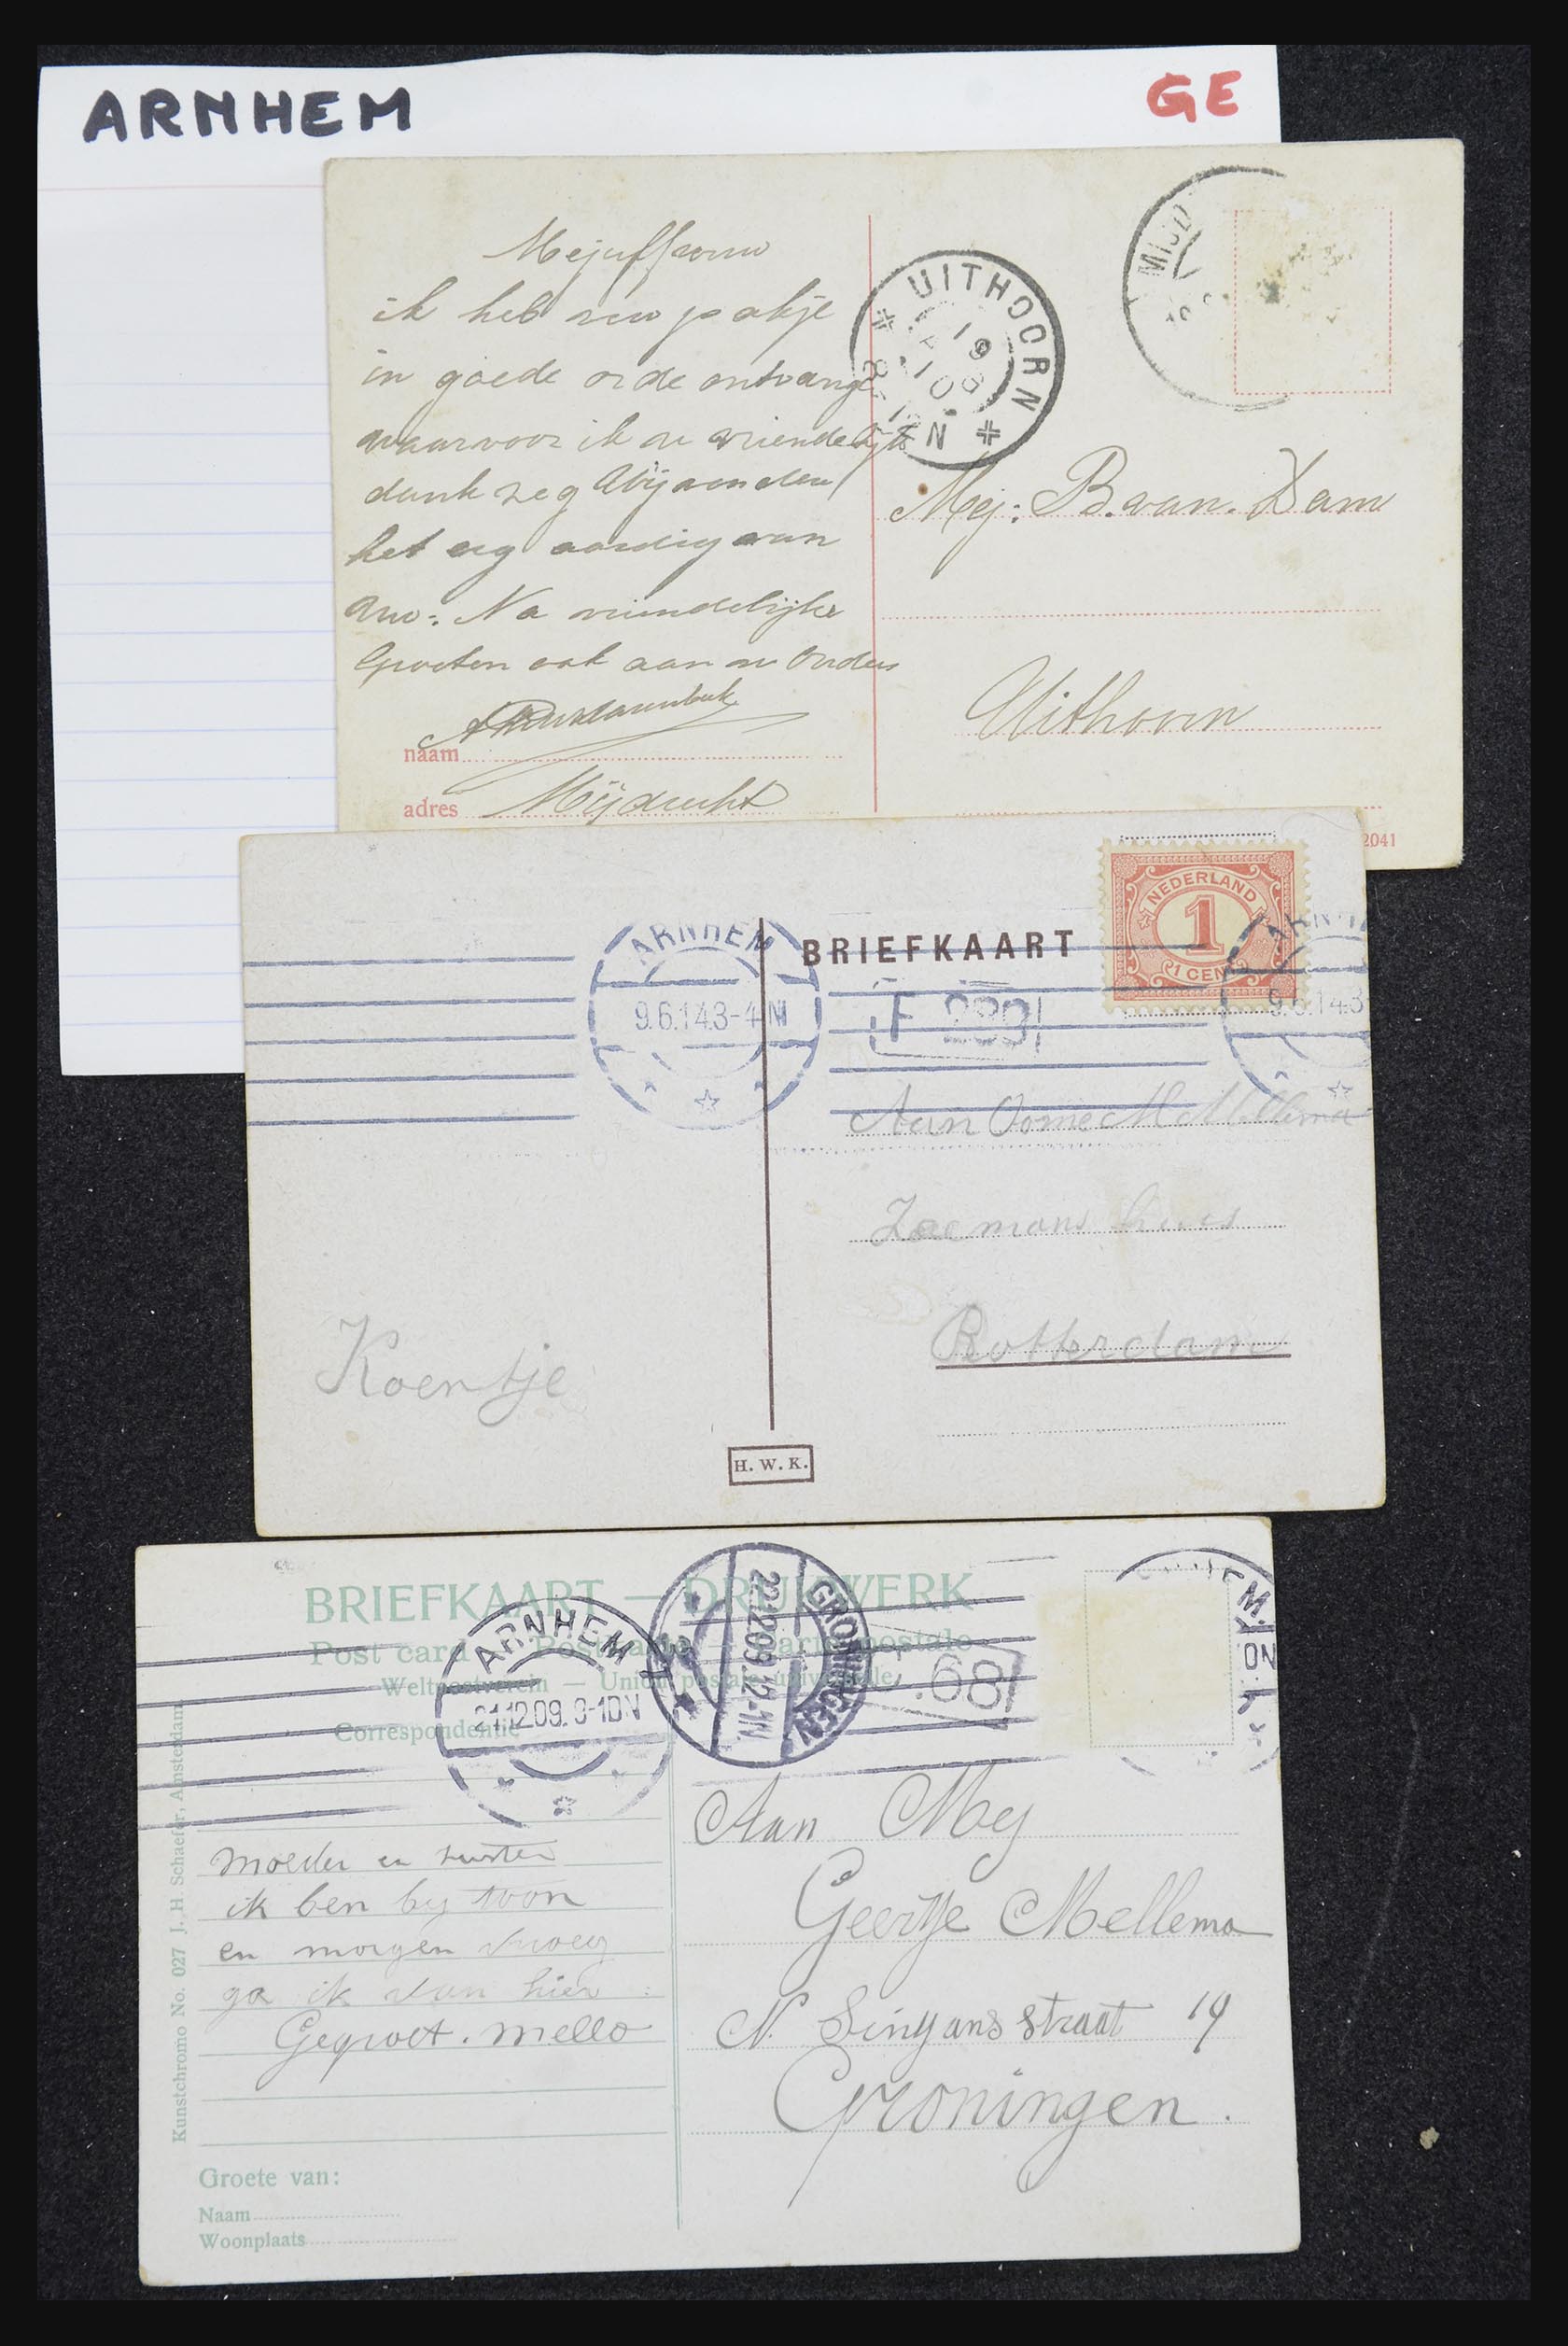 ARNHEM
GE
Mejuffrouw
ik heb uw pakje
in goede orde ontvange
waarvoor ik u vriendelijk
dank zeg Wij vonden
het erg aardig van
uw: Na vriendelijke
Groeten ook aan uw Ouders
naam
adres Mijdrecht
UITHOORN
8-12N
MIJD
Mej: B. van. Dam
Uithoorn
2041
BRIEFKAART
NEDERLAND
1
1 CENT
ARNHEM
9.6.14 3-4 N
ARNH
9.6.14 3
F 280
Aan Oome M Mellema
Zeemans huis
Rotterdam
Koentje
H. W. K.
BRIEFKAART — DRUKWERK
Post card — Postkarte — Carte postale
Weltpostverein — Union postale universelle
Correspondentie
ARNHEM
21.12.09. 9-10N
GRONINGEN
22.12.09 12-1N
68
EM.
ON
Moeder en zuster
ik ben by toon
en morgen vroeg
ga ik van hier
Gegroet. Mello
Aan Mej
Geertje Mellema
N. Singans straat 19
Groningen.
Groete van:
Naam
Woonplaats
Kunstchromo No. 027 J. H Schaefer, Amsterdam